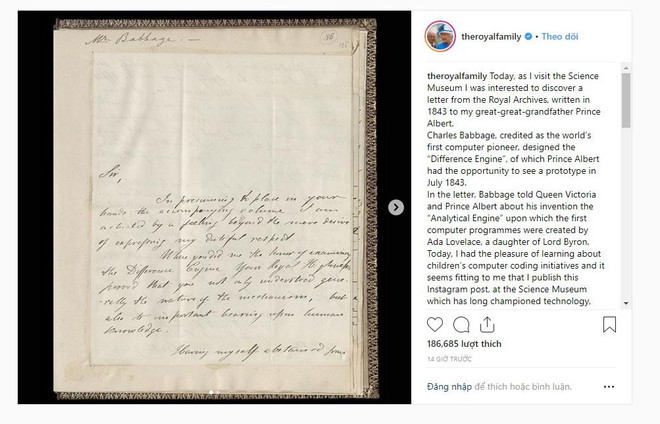 Mr Babbage. —
186
Sir,
In presuming to place in your
hands the accompanying volume I am
actuated by a feeling beyond the mere desire
of expressing my dutiful respect
When you did me the honor of examining
the Difference Engine Your Royal Highness
proved that you not only understood gene-
rally the nature of the mechanism, but
also its important bearing upon human
knowledge.
Having myself abstained from
theroyalfamily • Theo dõi
theroyalfamily Today, as I visit the Science
Museum I was interested to discover a
letter from the Royal Archives, written in
1843 to my great-great-grandfather Prince
Albert.
Charles Babbage, credited as the world's
first computer pioneer, designed the
"Difference Engine", of which Prince Albert
had the opportunity to see a prototype in
July 1843.
In the letter, Babbage told Queen Victoria
and Prince Albert about his invention the
"Analytical Engine" upon which the first
computer programmes were created by
Ada Lovelace, a daughter of Lord Byron.
Today, I had the pleasure of learning about
children's computer coding initiatives and it
seems fitting to me that I publish this
Instagram post, at the Science Museum
which has long championed technology,
186,685 lượt thích
14 GIỜ TRƯỚC
Đăng nhập để thích hoặc bình luận.